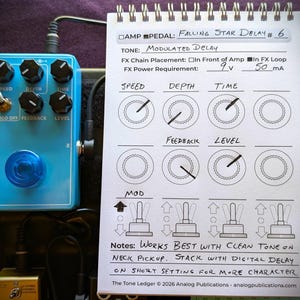 □AMP ■PEDAL: FALLING STAR DELAY # 6
TONE: MODULATED DELAY
FX Chain Placement: □In Front of Amp ■In FX Loop
FX Power Requirement: 9 V 50 mA
SPEED DEPTH TIME
FEEDBACK LEVEL
MOD
Notes: WORKS BEST WITH CLEAN TONE ON
NECK PICKUP. STACK WITH DIGITAL DELAY
ON SHORT SETTING FOR MORE CHARACTER
The Tone Ledger © 2026 Analog Publications - analogpublications.com
FEEDBACK
LEVEL